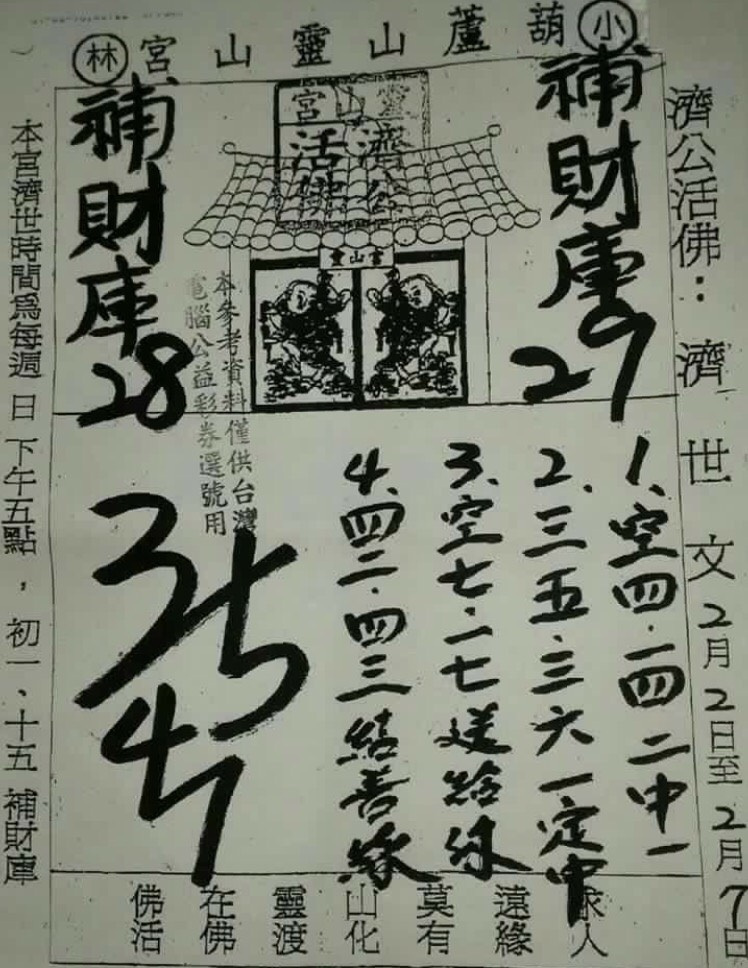 小葫蘆山靈山宮林
濟公活佛：濟世文2月2日至2月7日
補財庫29
靈山宮
濟公活佛
靈山宮
本參考資料僅供台灣
電腦公益彩券選號用
補財庫28
1、空四.一四二中一
2、三五.三六一定中
3、空七.一七送給
4、四二.四三結善緣
35
佛在靈山莫遠求
活佛渡化有緣人
本宮濟世時間為每週日下午五點，初一、十五補財庫